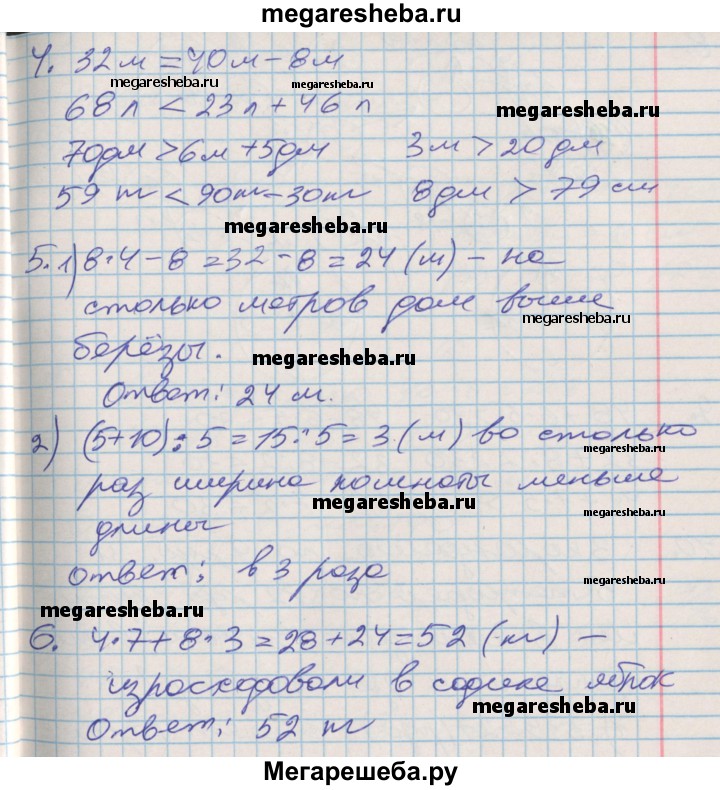 megaresheba.ru
4. 32 м = 40 м - 8 м
megaresheba.ru megaresheba.ru
68 л < 23 л + 46 л
megaresheba.ru
70 дм > 6 м + 5 дм 3 м > 20 дм
59 т < 90 т - 30 т 8 дм > 79 см
megaresheba.ru
5. 1) 8·4 - 8 = 32 - 8 = 24 (м) - на
столько метров дом выше
megaresheba.ru
берёзы.
megaresheba.ru
Ответ: 24 м.
2) (5+10) : 5 = 15 : 5 = 3 (м) во столько
раз ширина комнаты меньше
megaresheba.ru
длины
megaresheba.ru
Ответ: в 3 раза
megaresheba.ru
megaresheba.ru
6. 4·7 + 8·3 = 28 + 24 = 52 (т) -
израсходовали в садике яблок
megaresheba.ru
Ответ: 52 т
megaresheba.ru
Мегарешеба.ру